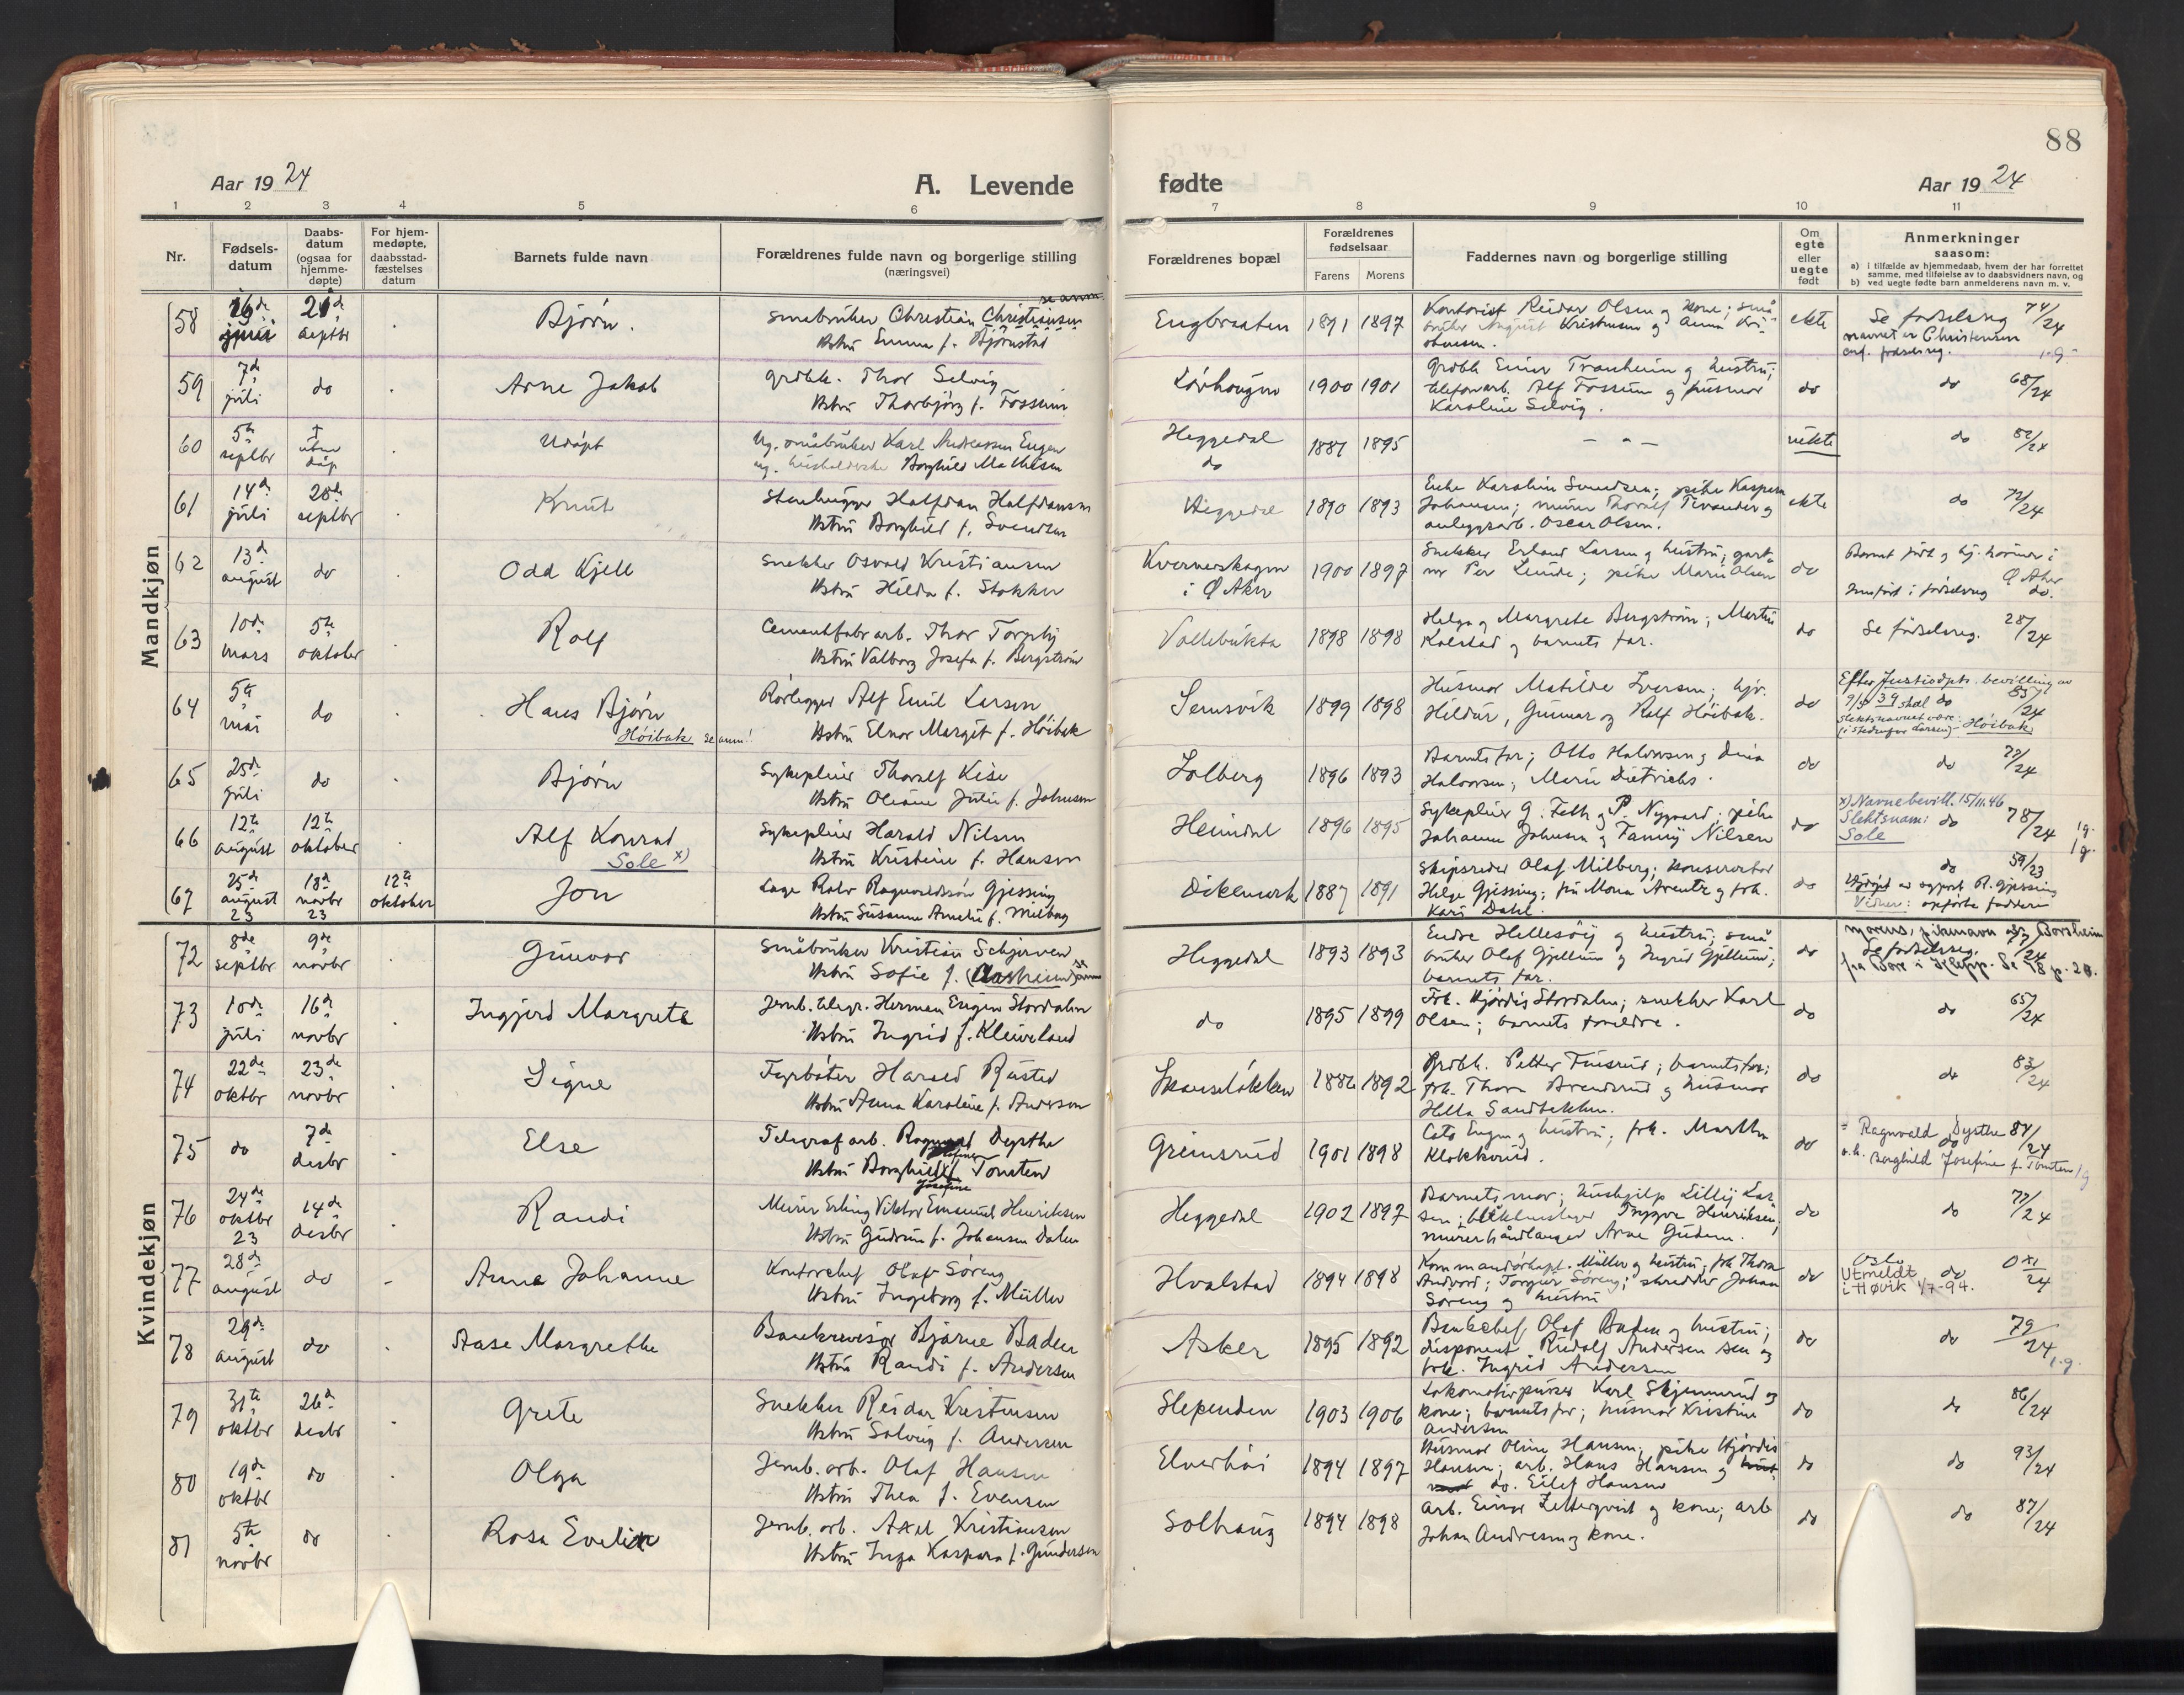 88
Aar 1924
A. Levende
fødte
Aar 1924
1 2 3 4 5 6 7 8 9 10 11
Nr.
Fødsels-
datum
Daabs-
datum
(ogsaa for
hjemme-
døpte)
For hjem-
medøpte,
daabsstad-
fæstelses
datum
Barnets fulde navn
Forældrenes fulde navn og borgerlige stilling
(næringsvei)
Forældrenes bopæl
Forældrenes
fødselsaar
Farens Morens
Faddernes navn og borgerlige stilling
Om
egte
eller
uegte
født
Anmerkninger
saasom:
a) i tilfælde av hjemmedaab, hvem der har forrettet
samme, med tilføielse av to daabsvidners navn, og
b) ved uegte fødte barn anmelderens navn m. v.
Mandkjøn
58 septbr Bjørn. Christian Christiansen
Hstru Emma f. Bjørnstad
1891 1897 Kontorist Reidar Olsen og kone; små-
ekte Se fødselsreg 74/24
navnet er Christensen
59 7de juli do Arne Jakob Thor Selvig
Hstru Thorbjørg f. Fossum
1900 1901
telefonarb. Alf Fossum og husmor
Karoline Selvig.
do do 68/24
60 5te septbr † uten dåp Udøpt Ug. småbruker Karl Andreassen Engen
ug. Borghild Mathisen
Heggedal
do
1887 1895 uekte do 82/24
61 14de juli 28de septbr Knut Stenhugger Halfdan Halfdansen
Hstru Borghild f. Svendsen
Heggedal 1890 1893 Enke Karoline Svendsen; pike Kaspara
Johansen; murer Thoralf og
anleggsarb. Oscar Olsen.
ekte do 72/24
62 13de august do Odd Kjell Snekker Osvald Kristiansen
Hstru Hilda f. Stokker
i Ø Aker
1900 1897 Snekker Erland Larsen og hustru; gart-
ner Per Lunde; pike Marie Olsen
do Ø Aker
Innført i fødselsreg do.
63 10de mars 5te oktober Rolf Cementfabr arb. Thor Torgny
Hstru Valborg Josefa f. Bergstrøm
Vollebukta 1898 1898 Helga og Margrete Bergstrøm; Martin
Kolstad og barnets far.
do Se fødselsreg. 28/24
64 5te mai do Hans Bjørn
Høibak se anm!
Rørlegger Alf Emil Larsen
Hstru Elnor Margit f. Høibak
Semsvik 1899 1898 Husmor Matilde Iversen; hjv.
Hildur, Gunnar og Rolf Høibak.
do Efter Justisdpts. bevilling av
9/5 39 skal do 85/24
slektsnavnet være: Høibak
(i stedenfor Larsen)
65 25de juli do Bjørn Sykepleier Thoralf Kise
Hstru Oliane Julie f. Johnsen
Solberg 1896 1893 Barnets far; Otto Halvorsen og Dina
Halvorsen; Marie Dietrichs.
do do
66 12te august 12te oktober Alf Konrad
Sole x)
Sykepleier Harald Nilsen
Hstru Kristine f. Hansen
Heimdal 1896 1895 Sykepleier G. Feth og P. Nygaard; pike
Johanne Johnsen og Fanny Nilsen
do x) Navnebevill. 15/11.46
Slektsnam: do 78/24
Sole
67 25de august 23 18de novbr 23 12te oktober Jon Læge Rolv Ragnvaldssøn Gjessing
Hstru Susanne Amelie f. Milberg
Dikemark 1887 1891 Skipsreder Olaf Milberg; konservator
Helge Gjessing; fru Mona Arentz og frk.
Kari Dahl.
do do 59/23
Vidner: anførte faddere
Kvindekjøn
72 8de septbr 9de novbr Gunvor Småbruker Kristian Schjerven
Hstru Sofie f.
Heggedal 1893 1893 Endre Hellesøy og hustru; små-
bruker Olaf Gjellum og Ingrid Gjellum;
barnets far.
do Borsheim
Se fødselsreg.
73 10de juli 16de novbr Ingjerd Margrete Jernb. telegr. Herman Eugen Stordalen
Hstru Ingrid f. Kleiveland
do 1895 1899 Frk. Hjørdis Stordalen; snekker Karl
Olsen; barnets foreldre.
do do 65/24
74 22de oktbr 23de novbr Signe Fyrbøter Harald Rustad
Hstru Anna Karoline f. Andersen
1886 1892 Petter Fusrud; barnets far;
frk. Thora Brendsrud og husmor
Hella Sandbakken.
do do 83/24
75 do 7de desbr Else Telegraf arb. Dysthe
Hstru Borghild f. Tonsten
Josefine
Grimsrud 1901 1898 Cato Engen og hustru; frk. Martha
Klokkerud.
do = Ragnvald Dysthe 84/24
do
o.h. Borghild Josefine f. Tonsten
76 24de oktbr 23 14de desbr Randi Murer Erling Viktor Emanuel Henriksen
Hstru Gudrun f. Johansen Dalen
Heggedal 1902 1897 Barnets mor; hushjelp Lilly Lar-
sen; blikkenslager Trygve Henriksen;
murerhåndlanger Arne Gudem.
do do 77/24
77 28de august do Anne Johanne Kontorchef Olav Søreng
Hstru Ingeborg f. Müller
Hvalstad 1894 1898 Kommandørkapt. Müller og hustru; frk Thora
Torgeir Søreng; skredder Johan
Søreng og hustru
do Oslo
Utmeldt do
i Høvik 1/7-94.
78 29de august do Aase Margrethe Bankrevisor Bjarne Baden
Hstru Randi f. Andersen
Asker 1895 1892 Bankchef Olaf Baden og hustru;
disponent Rudolf Andersen sen og
frk. Ingrid Andersen
do do 79/24
79 31te oktbr 26de desbr Grete Snekker Reidar Kristensen
Hstru Solveig f. Andersen
Slependen 1903 1906 Lokomotivpusser Karl Skjennerud og
kone; barnets far; husmor Kristine
Andersen
do do 86/24
80 19de oktbr do Olga Jernb. arb. Olaf Hansen
Hstru Thea f. Evensen
Elverhøi 1894 1897 Husmor Oline Hansen; pike Hjørdis
Hansen; arb. Hans Hansen og
do. Eilef Hansen
do do 93/24
81 5te novbr do Rosa Evelin Jernb. arb. Axel Kristiansen
Hstru Inga Kaspara f. Gundersen
Solhaug 1894 1898 arb. Einar Zetterqvist og kone; arb
Johan Andresen og kone.
do do 87/24